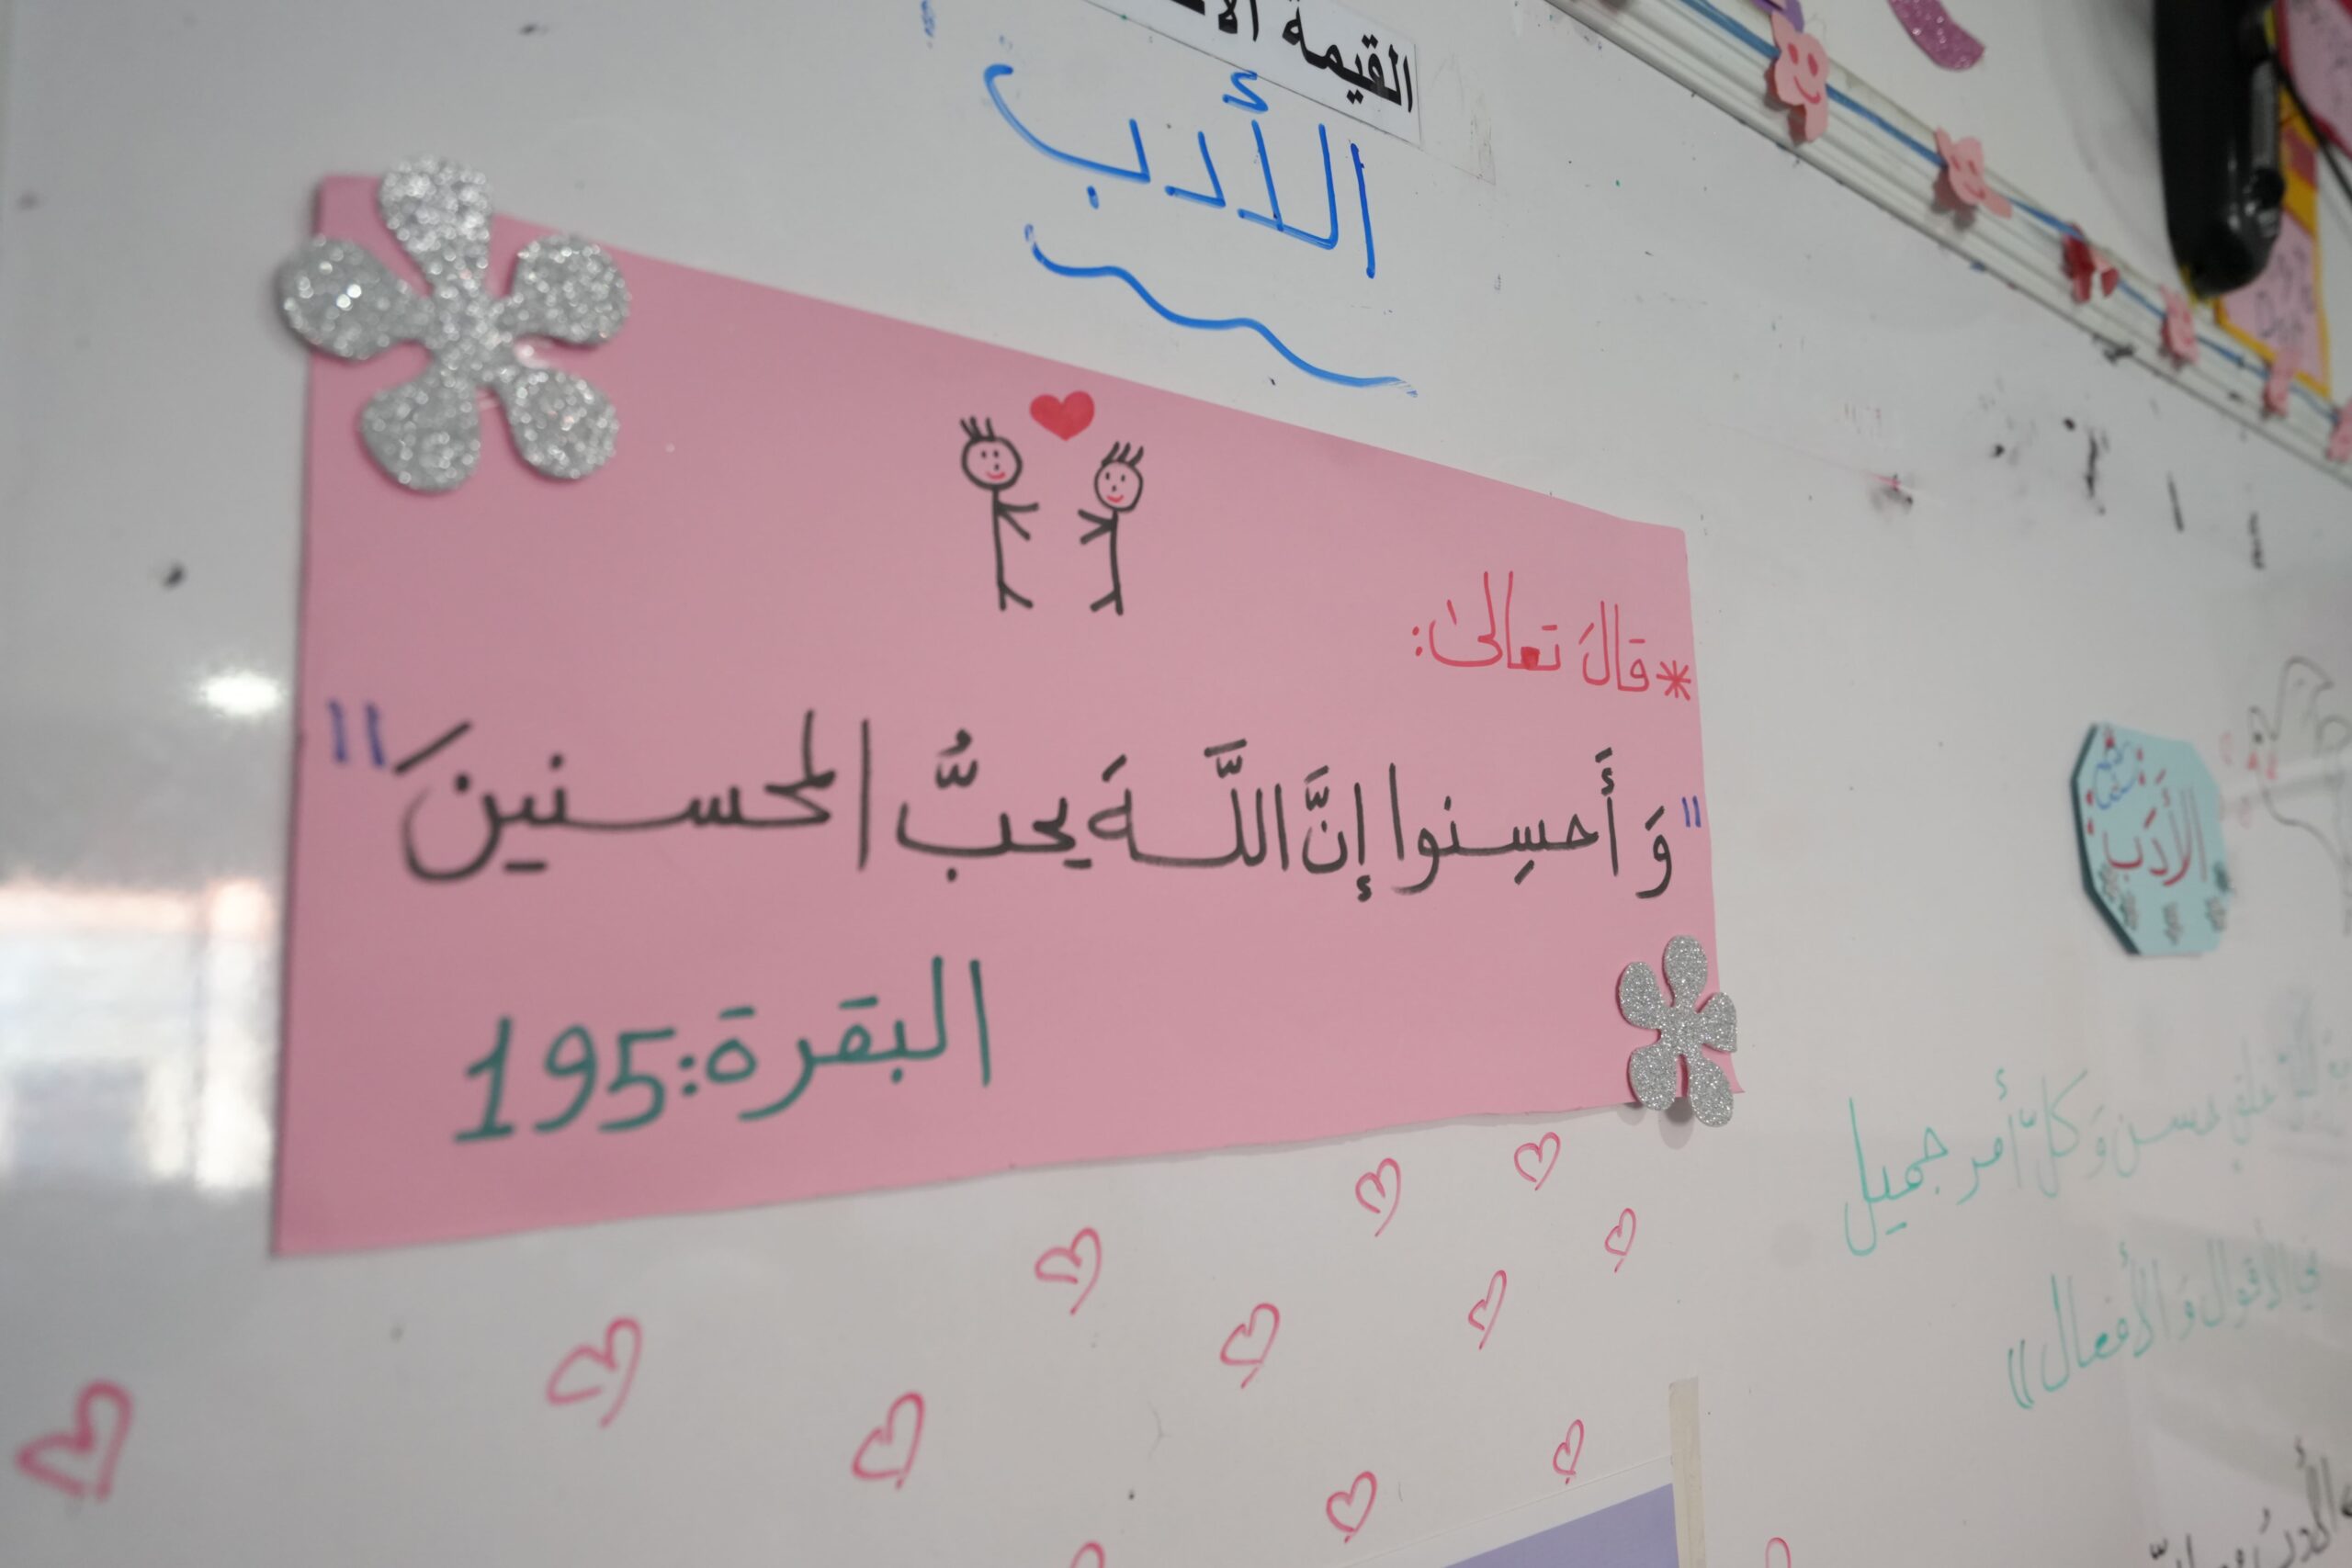 القيمة
الأدب
*قالَ تعالىٰ:
"وَ أَحسِنوا إنَّ اللَّـهَ يحبُّ المحسنينَ"
البقرة:195
الأدَب
حسن وَكلّ أمر جميل
في الأقوال وَ الأفعال))